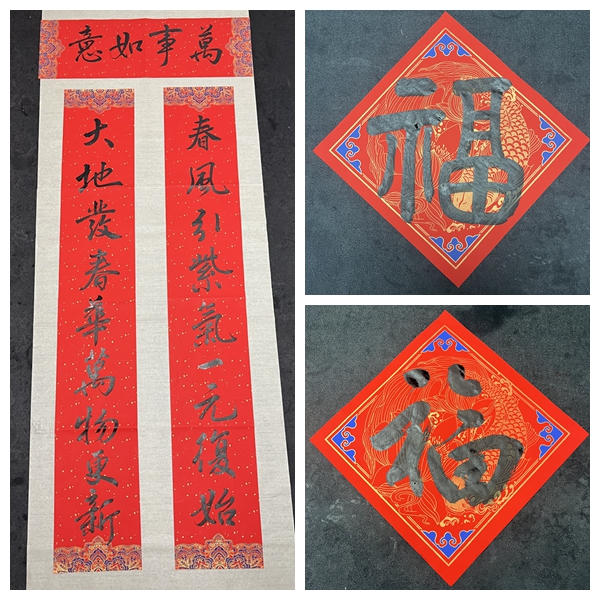 萬事如意
春風引紫氣一元復始
大地發春華萬物更新
福
福